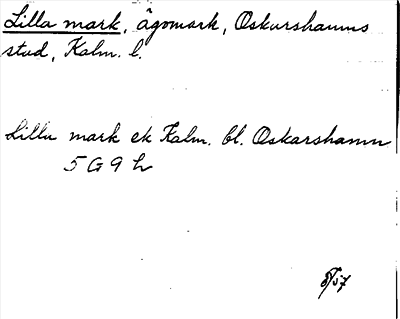 Lilla mark, ägomark, Oskarshamns
stad, Kalm. l.
Lilla mark ek Kalm. bl. Oskarshamn
5 G 9 h